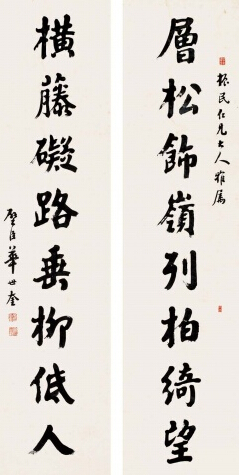 振民仁兄大人雅屬
層松飾嶺列柏綺望
橫藤礙路垂柳低人
璧臣華世奎